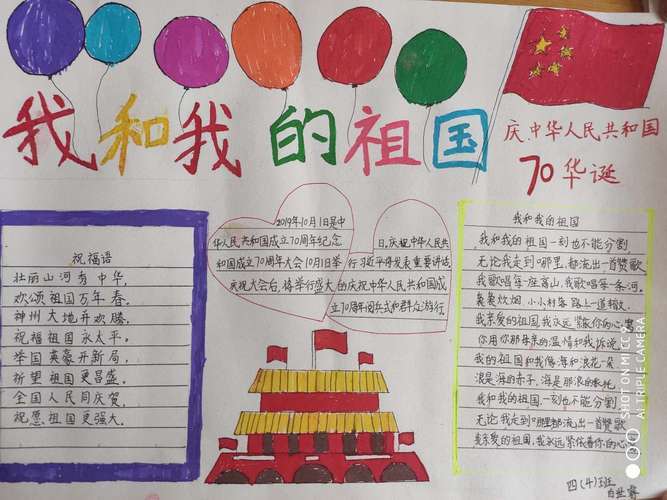 我和我的祖国
庆中华人民共和国
70华诞
祝福语
壮丽山河有中华,
欢颂祖国万年春。
神州大地开欢腾,
祝福祖国永太平。
举国英豪开新局,
祈望祖国更昌盛。
全国人民同庆贺
祝愿祖国更强大。
2019年10月1日是中
华人民共和国成立70周年纪念
日,庆祝中华人民共
和国成立70周年大会10月1日举
行习近平将发表重要讲话,
庆祝大会后,将举行盛大的庆祝中华人民共和国成
立70周年阅兵式和群众游行。
我和我的祖国
我和我的祖国一刻也不能分割
无论我走到哪里,都流出一首赞歌
我歌唱每一座高山,我歌唱每一条河,
袅袅炊烟,小小村落,路上一道辙
我亲爱的祖国,我永远紧依你的心窝
你用你那母亲的温情和我诉说
我的祖国和我像海和浪花一朵
浪是海的赤子,海是那浪的依托
我和我的祖国,一刻也不能分割
无论我走到哪里都流出一首赞歌
我亲爱的祖国,我永远紧依着你的心
四(4)班
SHOT ON MI CC
AI TRIPLE CAMERA